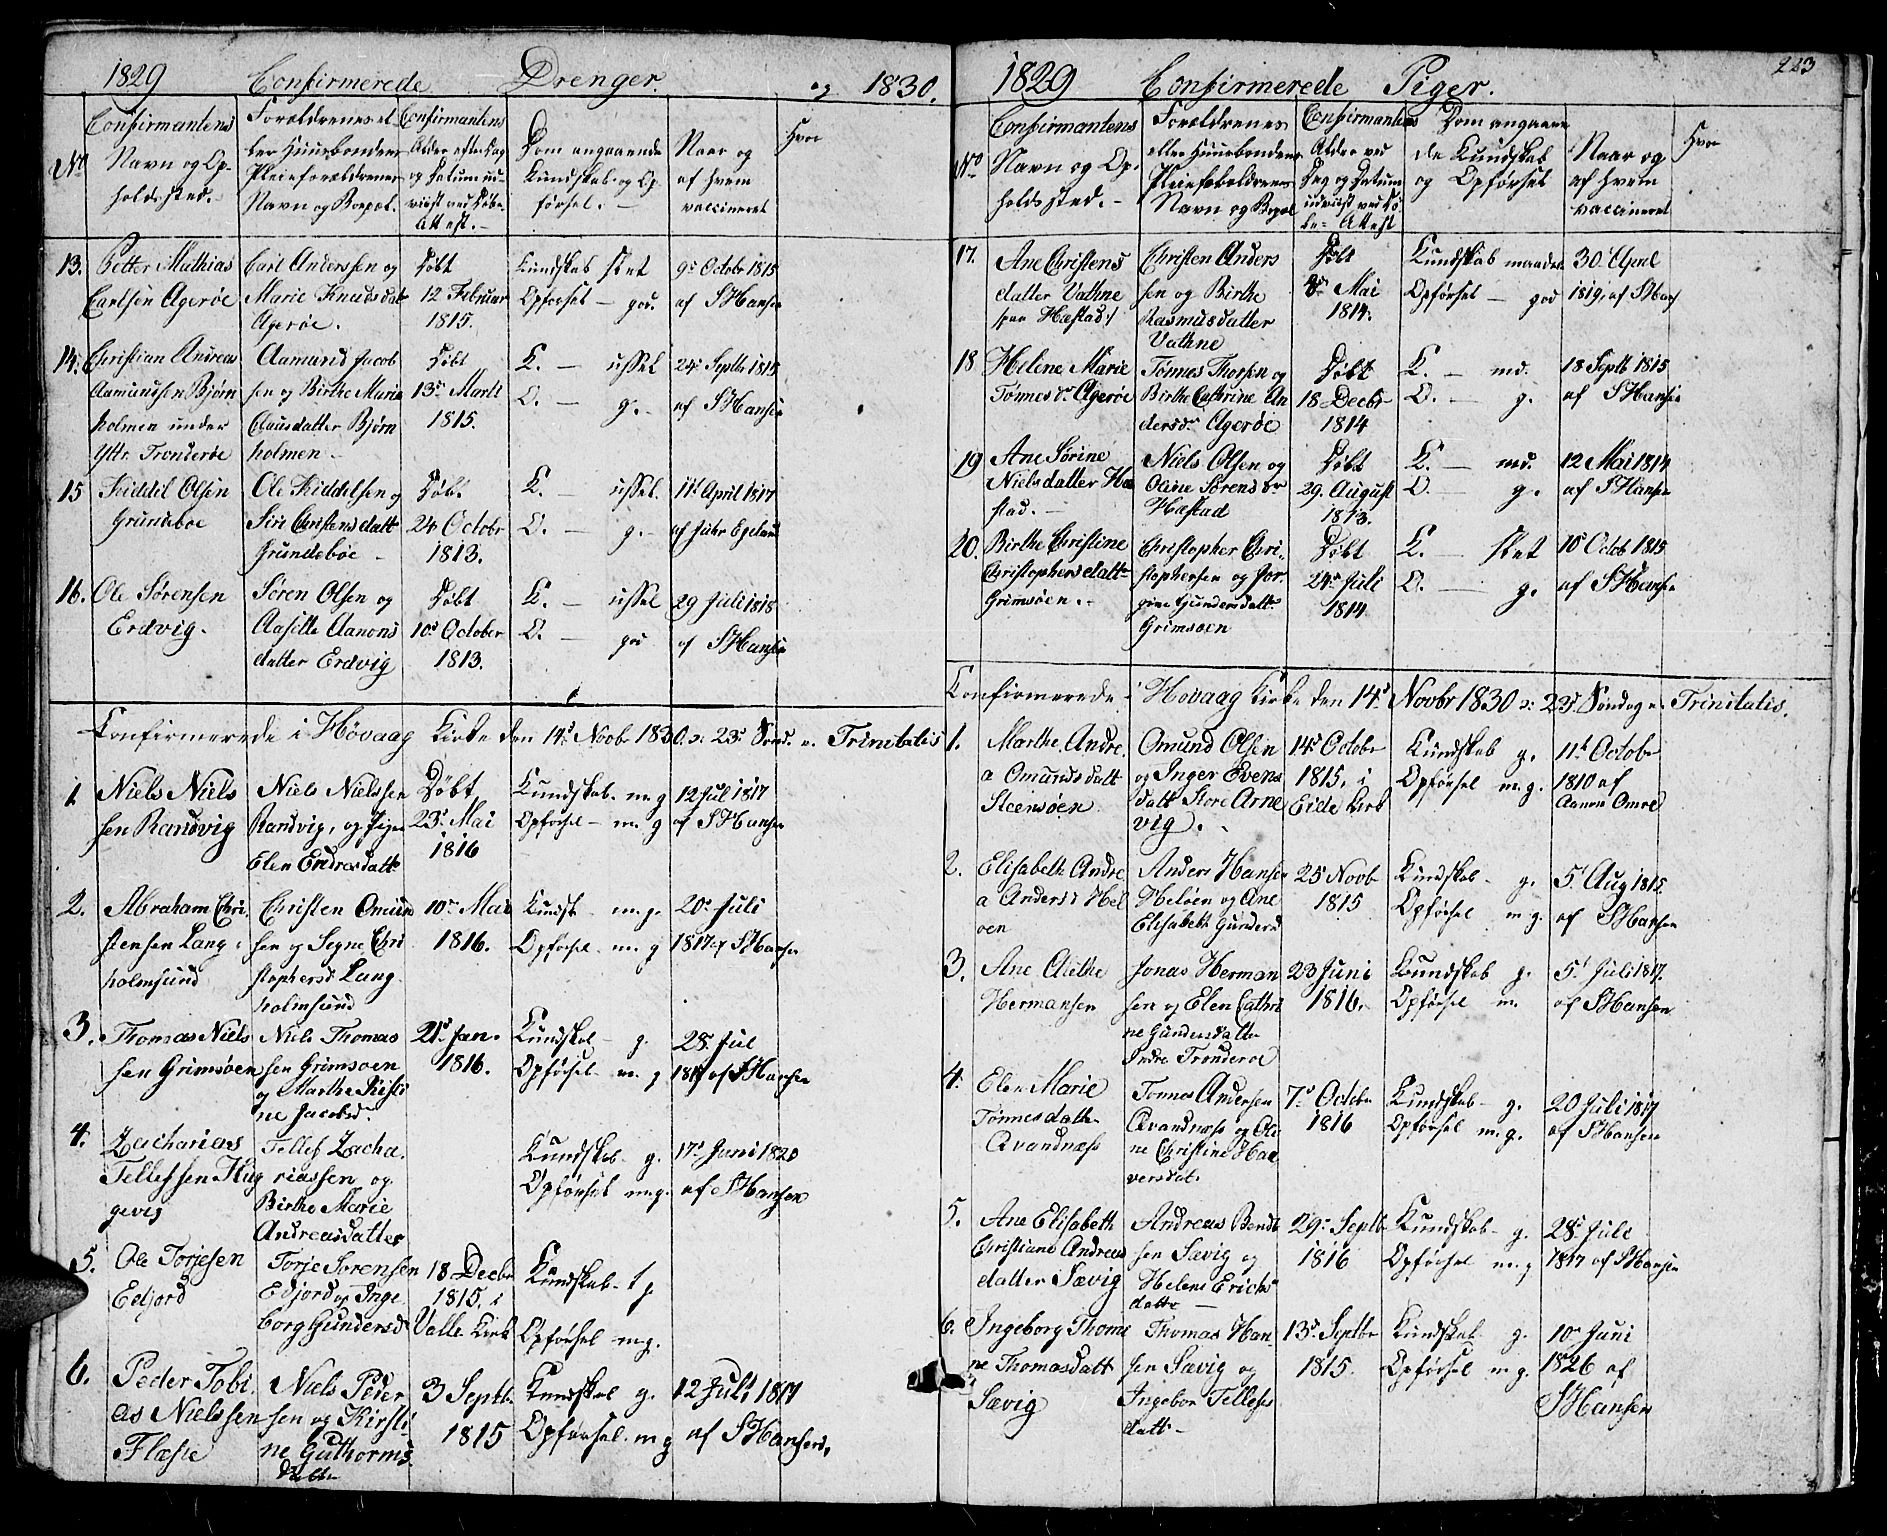 1829 Confirmerede Drenger. og 1830.
No
Confirmantens
Navn og Op-
holdssted.
Forældrenes el
ler Huusbondens
Pleieforældrenes
Navn og Bopæl.
Confirmantens
Alder efter Dag
og Datum ud-
viist ved Døbe-
Attest.-
Dom angaaende
Kundskab og Op
førsel. -
Naar og
af hvem
vaccineret
Hvor
13. Petter Mathias
Carlsen Agerøe
Carl Anderssen og
Marie Knudsdatt
Agerøe.
Døbt
12 Februar
1815.
Kundskab slet
Opførsel - god.
9de Octobr 1815
af SHansen
14. Christian Andreas
Aamundsen Bjørn
holmen under
Yttr. Tronderøe
Aamund Jacob
sen og Birthe Maria
Clausdatter Bjørn
holmen -
Døbt
13de Marti
1815.
K. - ussel
O. - g.-
24de Septbr 1815
af SHansen
15 Kiddil Olsen
Grundeboe
Ole Kiddelsen og
Siri Christensdatt
Grundebøe -
Døbt
24 Octobr
1813.
K. - ussel.
O. - g.-
11te April 1817
16. Ole Sørensen
Erdvig.
Søren Olsen og
Aasille Aanons
datter Erdvig
Døbt
10de October
1813.
K. - ussel
O. - god
29 Juli 1815
af SHansen
Confirmerede i Høvaag Kirke den 14de Novb 1830. o: 23de Sønd. e. Trinitatis
1 Niels Niels
sen Randvig
Niels Nielssen
Randvig, og Pigen
Elen Endresdatt
Døbt
23de Mai
1816
Kundskab m g
Opførsel - m. g
12 Jul 1817
af SHansen
2. Abraham Chri
stensen Lang
holmsund
Christen Omun
sen og Segne Chri
stophersd. Lang
holmsund
10de Mai
1816.
Kundsk m. g.
Opførsel - m. g
20de Juli
1817 af SHansen
3. Thomas Niels
sen Grimsøen
Niels Thomas
sen Grimsoen
og Marthe Kisti
ne Jacobsd.
21de Jan.
1816.
Kundskab - g.
Opførsel - m. g
28de Jul
1817 af SHansen
4. Zacharias
Tellefsen Hug
gevig
Tellef Zacha.
riassen og
Birthe Marie
Andreasdatter
Kundskab - g.
Opførsel m.g.
17de Juni 1820
af SHansen
5. Ole Torjesen
Edjord
Torje Sørensen
Edjord og Inge
borg Gundersd
18 Decbr
1815. i
Valle Kirk
Kundskab - t g
Opførsel m.g.
6. Peder Tobi
as Nielssen
Flæste
Niels Peder
sen og Kirsti
ne Guthorms
datter
3 Septbr
1815
Kundskab g.
Opførsel. m g
12 Juli 1817
af SHansen.
1829 Confirmerede Piger. 223
No
Confirmantens
Navn og Op-
holdssted. -
Forældrenes
eller Huusbondens
Pleieforældrenes
Navn og Bopæl
Confirmantens
Alder ved
Dag og Datum
udviist ved Dø
be- Attest
Dom angaaen
de Kundskab
og Opførsel
Naar og
af hvem
vaccineret
Hvor
17. Ane Christens
datter Vathne
Christen Anders
sen og Birthe
Rasmusdatter
Vathne
Døbt
8de Mai
1814.
Kundskab maadel
Opførsel - god
30 April
1819, af SHans
18 Helene Marie
Tønnesdr Agerøe
Tønnes Thorsen og
Birthe Cathrine An
dersdr Agerøe
Døbt
18 Decbr
1814
K. - md.
O. - g.
18 Septb 1815
af SHansen
19 Ane Sørine
Nielsdatter Hæ
stad. -
Niels Olsen og
Oline Sørensdr
Hæstad
Døbt
29. August
1813.
K. - md.
O. - g.
12 Mai 1814
af SHansen
20. Birthe Christine
Christophersdattr
Grimsøen. -
Christopher Chri-
stophersen og Jor-
gine Gundersdattr
Grimsøen
Døbt
24de Juli
1814
K. - slet
O. - g.
10de Octob 1815
af SHansen
Confirmerede i Høvaag Kirke den 14de Novbr 1830 o: 23de Søndag e. Trinitatis.
1. Marthe Andre.
a Omundsdatt
Steensøen
Omund Olsen
og Inger Evens
datt Store Arne
vig.
14de Octobr
1815, i
Eide Kirk
Kundskab g.
Opførsel m. g.
11te Octobr
1810 af
2. Elisabeth Andre
a Andersd Hel
oen
Anders Hansen
Heløen og Ane
Elisabeth Gundersd
25de Novb
1815
Kundskab - g.
Opførsel m g.
5te Aug 1815
af SHansen
3. Ane Grethe
Hermansen
Jonas Herman
sen og Elen Cathri
ne Gundersdattr
Indre Tronderoe
23 Juni
1816.
Kundskab g.
Opførsel m.
5te Juli 1817.
af SHansen
4. Elen Marie
Tønnesdattr
Qvandnæss
Tønnes Andersen
Qvandnæss og Oli
ne Christine Hal
versdat.
7de Octobr
1816
Kundskab - g.
Opførsel m.g.
20 Juli 1817
af SHansen
5. Ane Elisabeth
Christiane Andreas
datter Sævig
Andreas Bendt
sen Sævig og
Helene Erichs
datter -
29de Septbr
1816
Kundskab - g.
Opførsel m. g
28de Juli
1817 af SHansen
6. Ingeborg Thomi
ne Thomasdatt
Sævig
Thomas Han-
sen Sævig og
Ingebor Tellefs
datt -
13de Septbr
1815.
Kundskab g.
Opførsel m g.
10de Juni
1826 af
SHansen